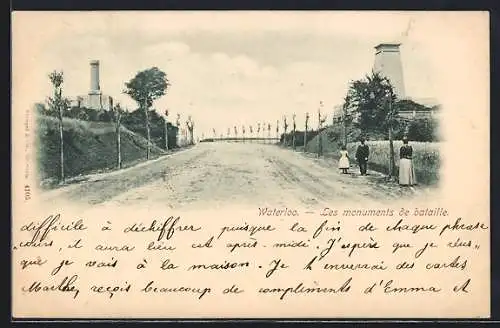 Waterloo. - Les monuments de bataille.
difficile à déchiffrer puisque la fin de chaque phrase
y aura lieu cet après-midi. J'espère que je
que je vais à la maison. Je t'enverrai des cartes
Marthe, reçois beaucoup de compliments d'Emma et
4105